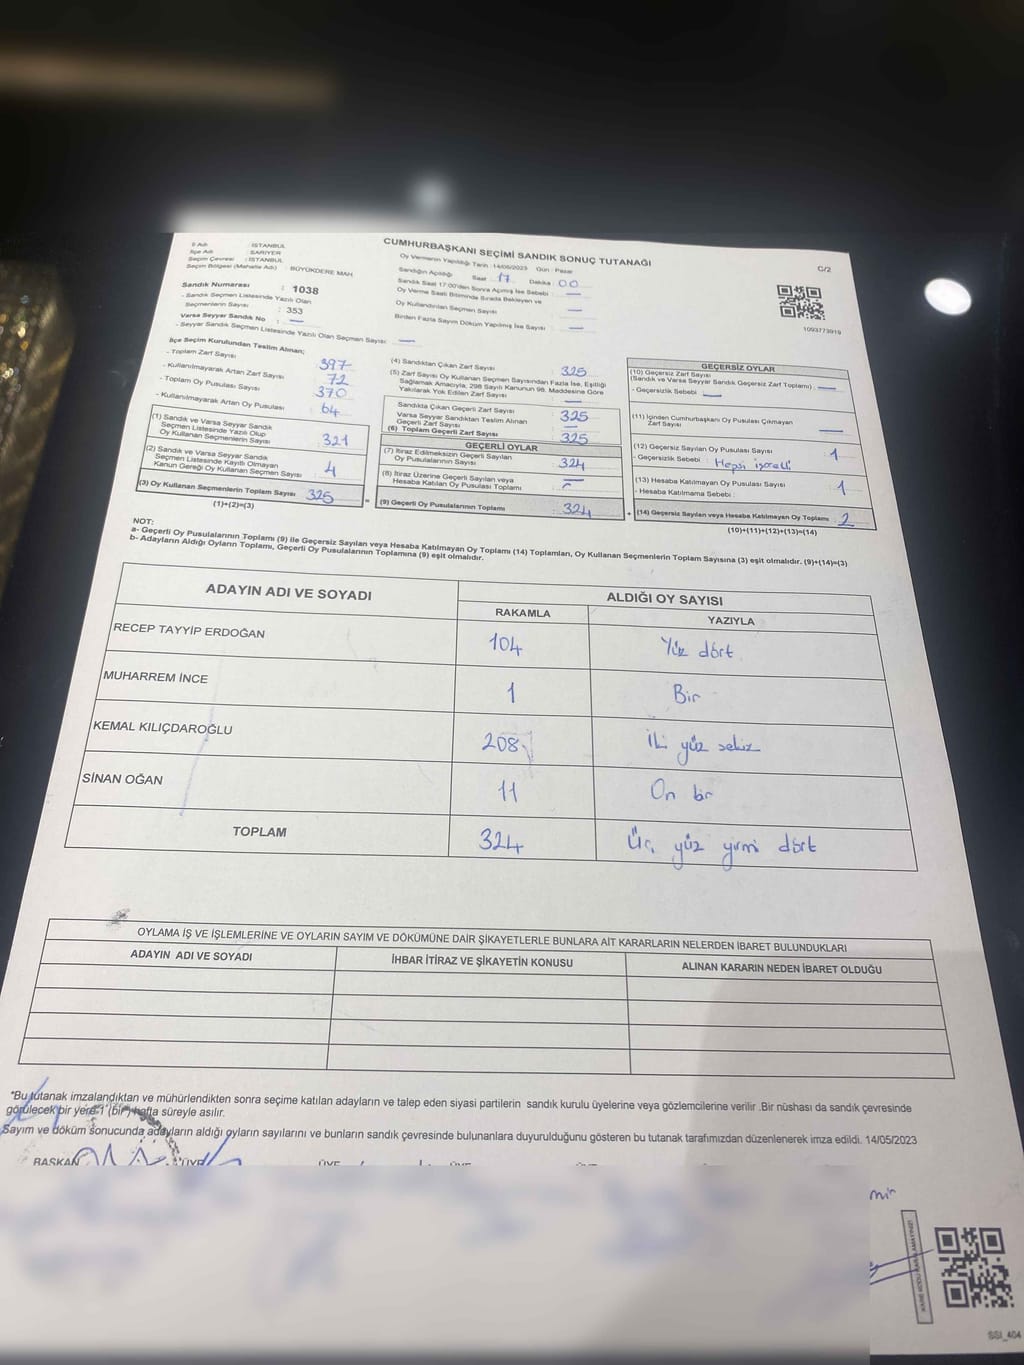 CUMHURBAŞKANI SEÇİMİ SANDIK SONUÇ TUTANAĞI
C/2
İl Adı : İSTANBUL
İlçe Adı : SARIYER
Seçim Çevresi : İSTANBUL
Seçim Bölgesi (Mahalle Adı) : BÜYÜKDERE MAH.
Sandık Numarası : 1038
- Sandık Seçmen Listesinde Yazılı Olan
Seçmenlerin Sayısı : 353
Varsa Seyyar Sandık No : —
- Seyyar Sandık Seçmen Listesinde Yazılı Olan Seçmen Sayısı: —
Oy Vermenin Yapıldığı Tarih : 14/05/2023 Gün : Pazar
Sandığın Açıldığı Saat 17 Dakika 00
Sandık Saat 17:00'den Sonra Açılmış İse Sebebi : —
Oy Verme Saati Bitiminde Sırada Bekleyen ve
Oy Kullandırılan Seçmen Sayısı —
Birden Fazla Sayım Döküm Yapılmış İse Sayısı —
1093773919
İlçe Seçim Kurulundan Teslim Alınan;
- Toplam Zarf Sayısı 397
- Kullanılmayarak Artan Zarf Sayısı 72
- Toplam Oy Pusulası Sayısı 370
- Kullanılmayarak Artan Oy Pusulası 64
(1) Sandık ve Varsa Seyyar Sandık
Seçmen Listesinde Yazılı Olup
Oy Kullanan Seçmenlerin Sayısı 321
(2) Sandık ve Varsa Seyyar Sandık
Seçmen Listesinde Kayıtlı Olmayan
Kanun Gereği Oy Kullanan Seçmen Sayısı 4
(3) Oy Kullanan Seçmenlerin Toplam Sayısı 325
(1)+(2)=(3)
(4) Sandıktan Çıkan Zarf Sayısı 325
(5) Zarf Sayısı Oy Kullanan Seçmen Sayısından Fazla İse, Eşitliği
Sağlamak Amacıyla, 298 Sayılı Kanunun 98. Maddesine Göre
Yakılarak Yok Edilen Zarf Sayısı —
Sandıkta Çıkan Geçerli Zarf Sayısı 325
Varsa Seyyar Sandıktan Teslim Alınan
Geçerli Zarf Sayısı —
(6) Toplam Geçerli Zarf Sayısı 325
GEÇERLİ OYLAR
(7) İtiraz Edilmeksizin Geçerli Sayılan
Oy Pusulalarının Sayısı 324
(8) İtiraz Üzerine Geçerli Sayılan veya
Hesaba Katılan Oy Pusulası Toplamı
= (9) Geçerli Oy Pusulalarının Toplamı 324
GEÇERSİZ OYLAR
(10) Geçersiz Zarf Sayısı
(Sandık ve Varsa Seyyar Sandık Geçersiz Zarf Toplamı) —
- Geçersizlik Sebebi : —
(11) İçinden Cumhurbaşkanı Oy Pusulası Çıkmayan
Zarf Sayısı —
(12) Geçersiz Sayılan Oy Pusulası Sayısı 1
- Geçersizlik Sebebi : Hepsi işaretli
(13) Hesaba Katılmayan Oy Pusulası Sayısı 1
- Hesaba Katılmama Sebebi :
+ (14) Geçersiz Sayılan veya Hesaba Katılmayan Oy Toplamı 2
(10)+(11)+(12)+(13)=(14)
NOT:
a- Geçerli Oy Pusulalarının Toplamı (9) ile Geçersiz Sayılan veya Hesaba Katılmayan Oy Toplamı (14) Toplamları, Oy Kullanan Seçmenlerin Toplam Sayısına (3) eşit olmalıdır. (9)+(14)=(3)
b- Adayların Aldığı Oyların Toplamı, Geçerli Oy Pusulalarının Toplamına (9) eşit olmalıdır.
ADAYIN ADI VE SOYADI ALDIĞI OY SAYISI
RAKAMLA YAZIYLA
RECEP TAYYİP ERDOĞAN 104 Yüz dört
MUHARREM İNCE 1 Bir
KEMAL KILIÇDAROĞLU 208 İki yüz sekiz
SİNAN OĞAN 11 On bir
TOPLAM 324 Üç yüz yirmi dört
OYLAMA İŞ VE İŞLEMLERİNE VE OYLARIN SAYIM VE DÖKÜMÜNE DAİR ŞİKAYETLERLE BUNLARA AİT KARARLARIN NELERDEN İBARET BULUNDUKLARI
ADAYIN ADI VE SOYADI İHBAR İTİRAZ VE ŞİKAYETİN KONUSU ALINAN KARARIN NEDEN İBARET OLDUĞU
*Bu tutanak imzalandıktan ve mühürlendikten sonra seçime katılan adayların ve talep eden siyasi partilerin sandık kurulu üyelerine veya gözlemcilerine verilir .Bir nüshası da sandık çevresinde
görülecek bir yere 1 (bir) hafta süreyle asılır.
Sayım ve döküm sonucunda adayların aldığı oyların sayılarını ve bunların sandık çevresinde bulunanlara duyurulduğunu gösteren bu tutanak tarafımızdan düzenlenerek imza edildi. 14/05/2023
BAŞKAN ÜYE ÜYE ÜYE
SSI_404